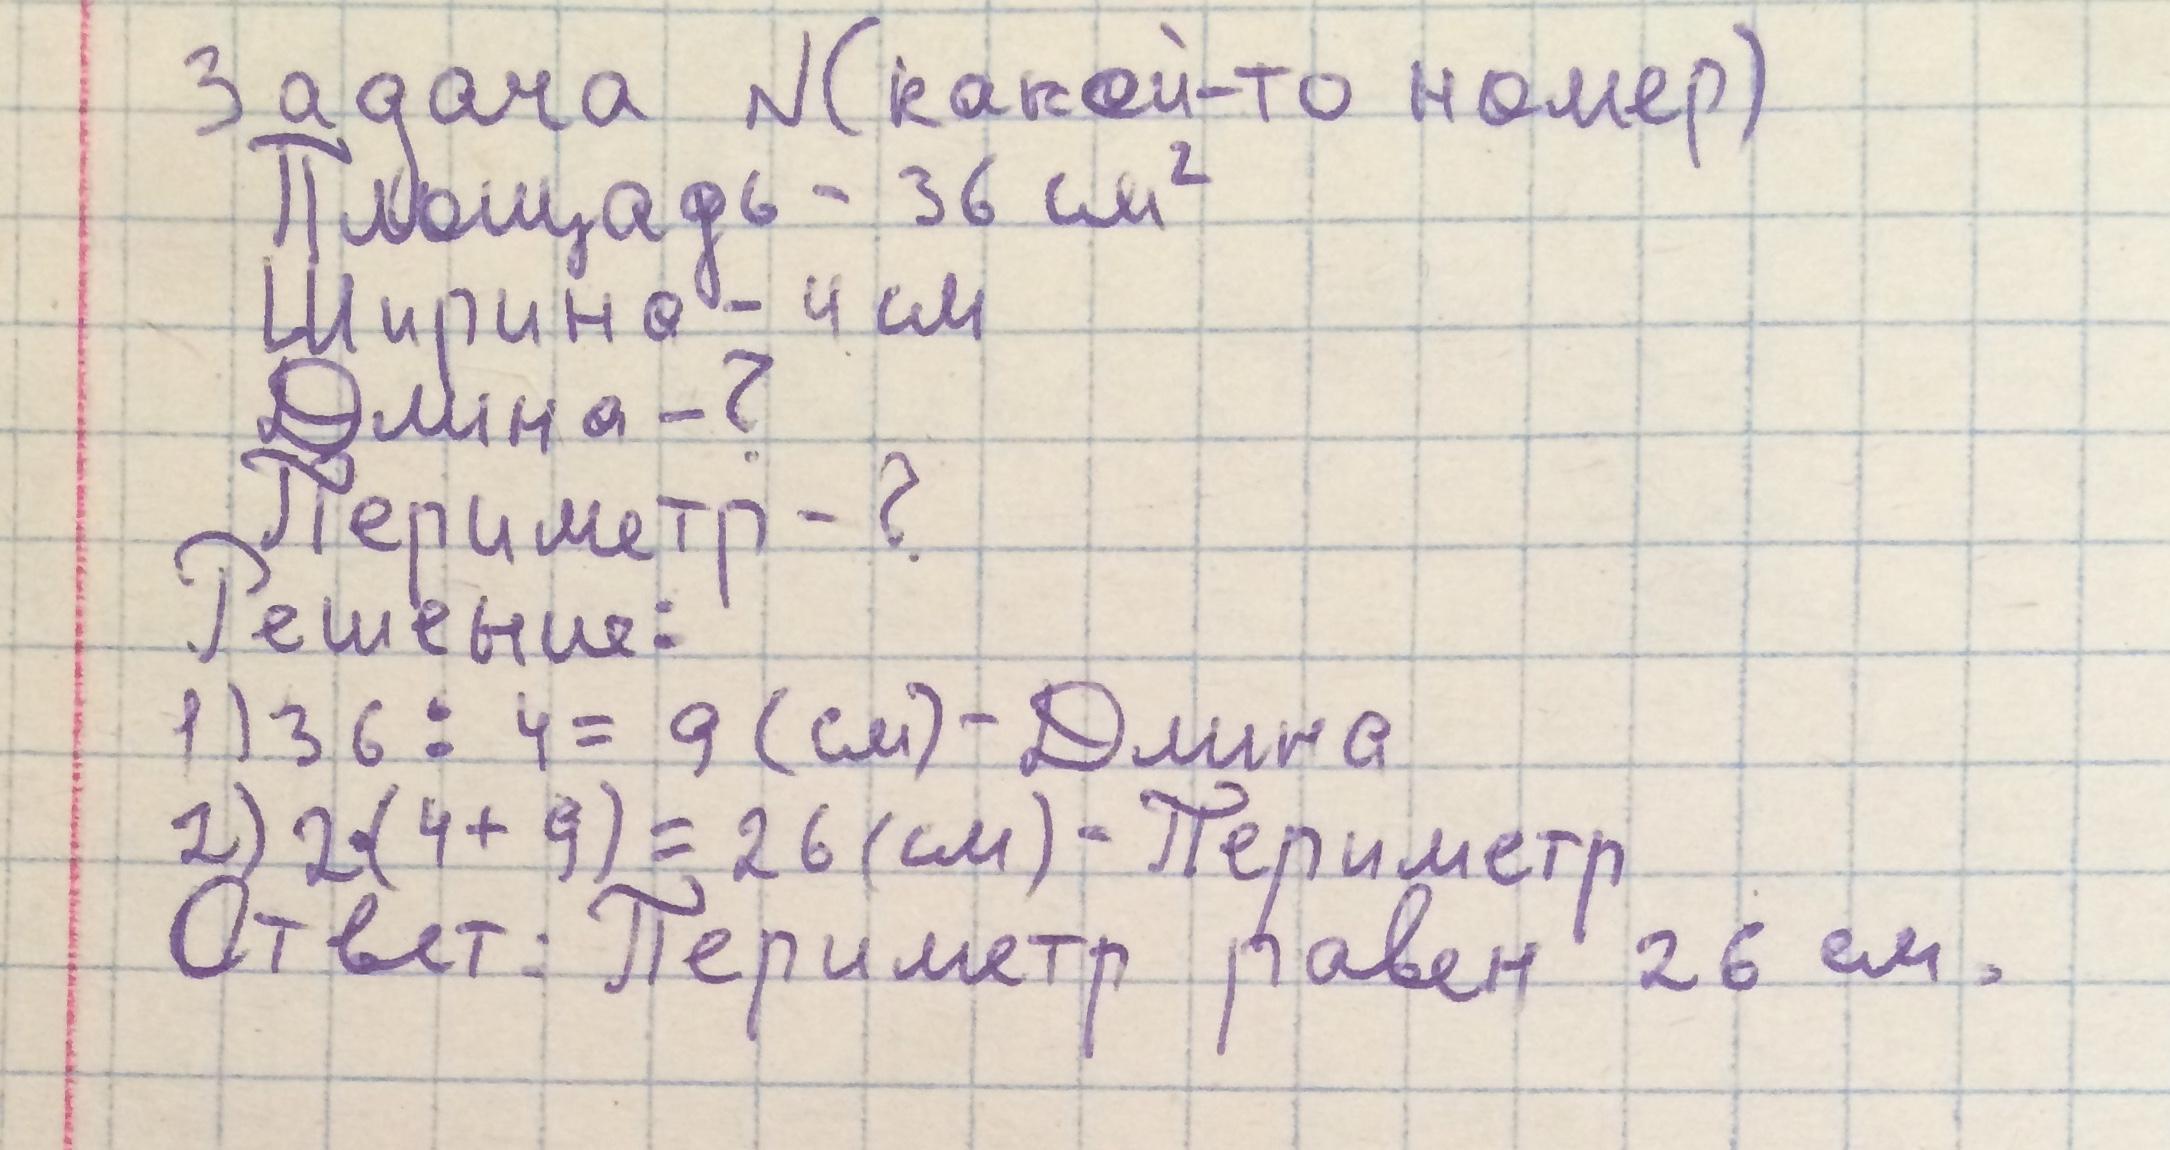 Задача N(какой-то номер)
Площадь - 36 см²
Ширина - 4 см
Длина - ?
Периметр - ?
Решение:
1) 36 : 4 = 9 (см) - Длина
2) 2·(4 + 9) = 26 (см) - Периметр
Ответ: Периметр равен 26 см.